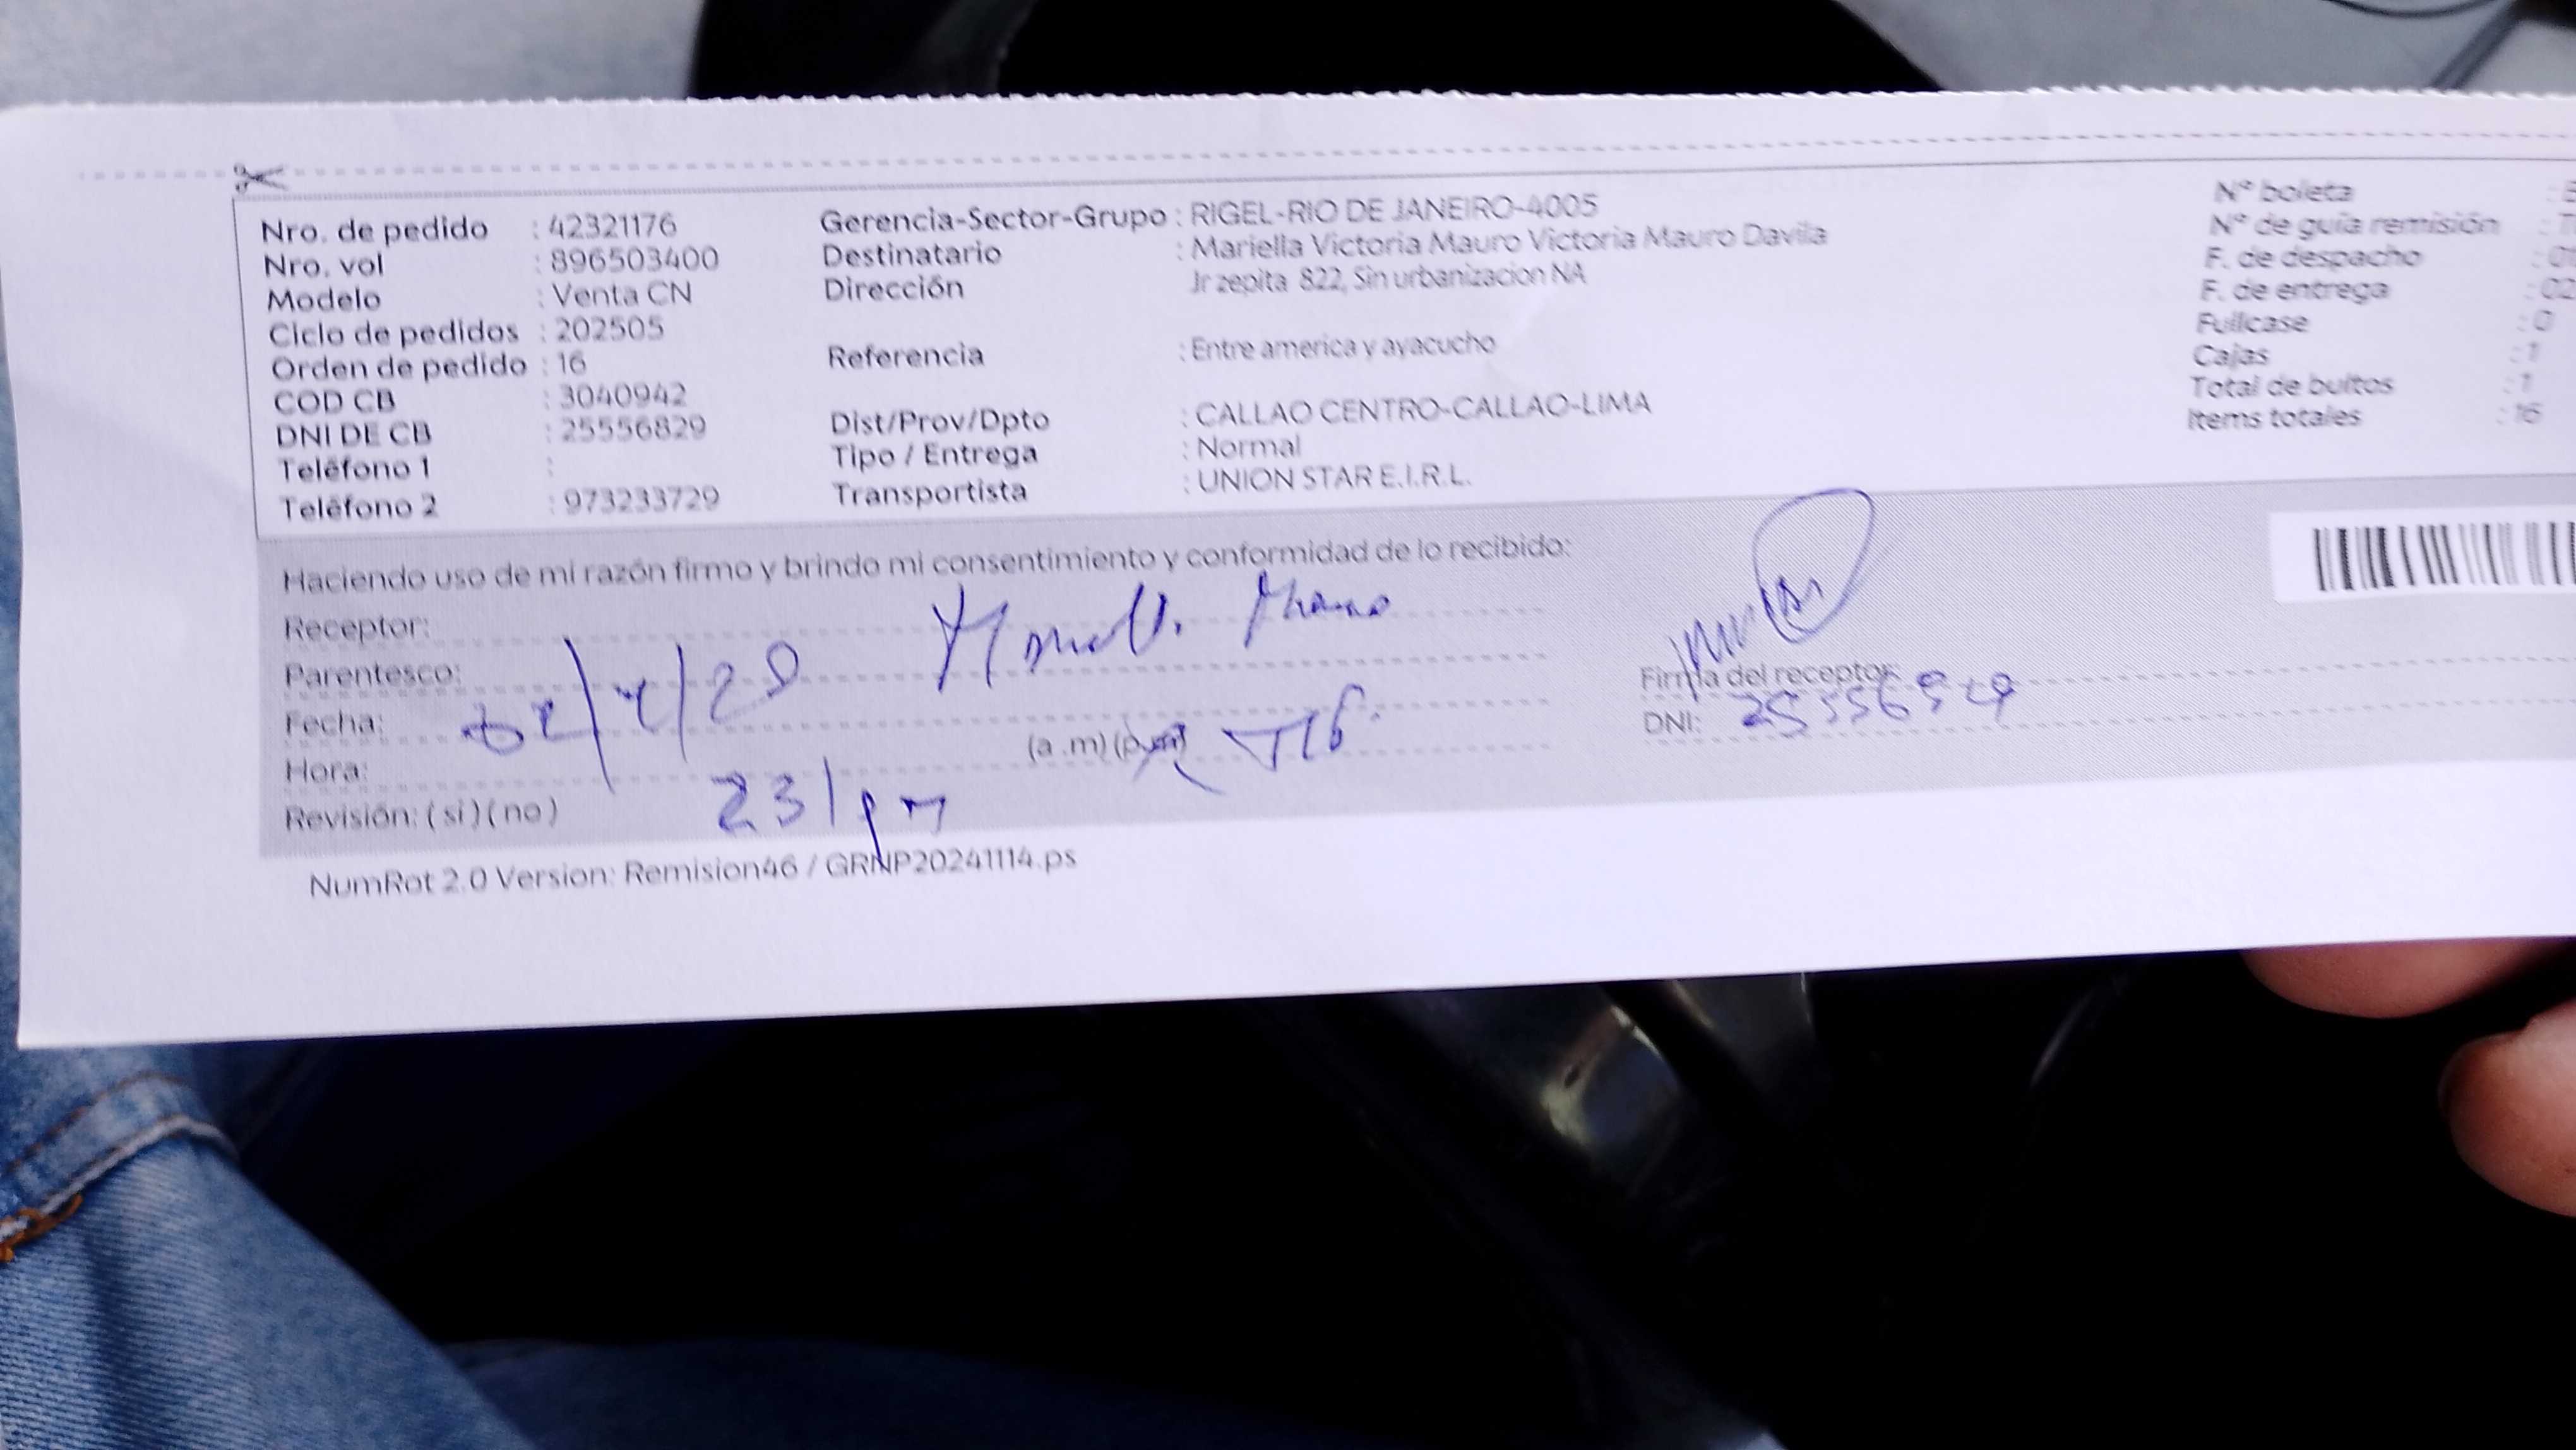 Nro. de pedido : 42321176
Nro. vol : 896503400
Modelo : Venta CN
Ciclo de pedidos : 202505
Orden de pedido : 16
COD CB : 3040942
DNI DE CB : 25556829
Teléfono 1 :
Teléfono 2 : 973233729
Gerencia-Sector-Grupo : RIGEL-RIO DE JANEIRO-4005
Destinatario : Mariella Victoria Mauro Victoria Mauro Davila
Dirección Jr zepita 822, Sin urbanizacion NA
Referencia : Entre america y ayacucho
Dist/Prov/Dpto : CALLAO CENTRO-CALLAO-LIMA
Tipo / Entrega : Normal
Transportista : UNION STAR E.I.R.L.
N° boleta :
N° de guía remisión :
F. de despacho : 01
F. de entrega : 02
Fullcase : 0
Cajas : 1
Total de bultos : 1
Items totales : 16
Haciendo uso de mi razón firmo y brindo mi consentimiento y conformidad de lo recibido:
Receptor:
Parentesco:
Fecha:
Hora: (a .m) (p.m)
Revisión: ( si ) ( no ) 231pm
Firma del receptor:
DNI:
NumRot 2.0 Version: Remision46 / GRNP20241114.ps